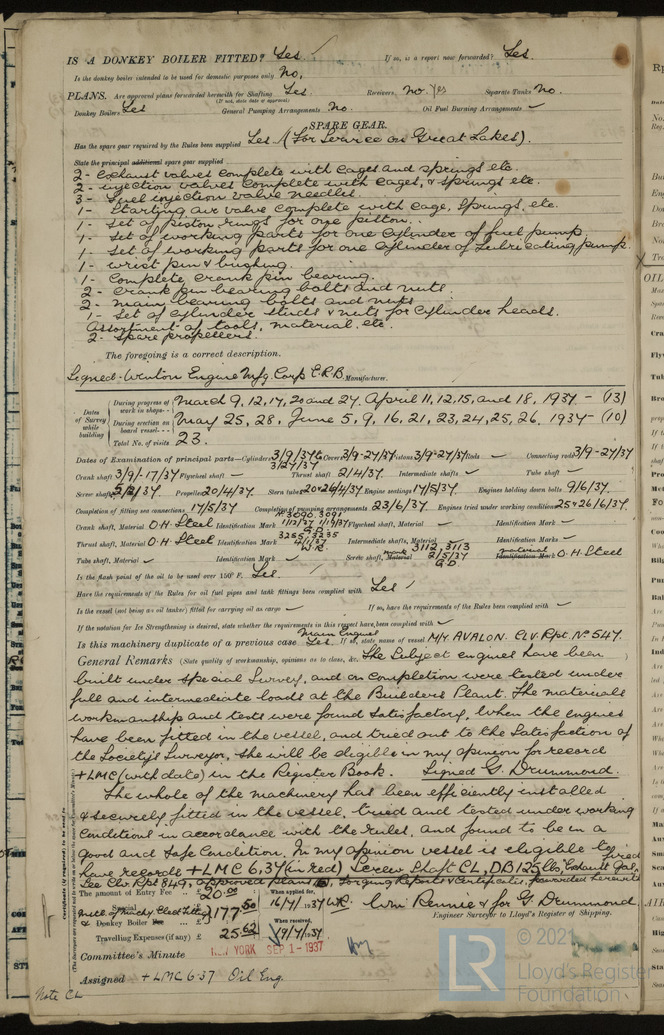 IS A DONKEY BOILER FITTED? Yes. If so, is a report now forwarded? Yes.
Is the donkey boiler intended to be used for domestic purposes only No.
PLANS. Are approved plans forwarded herewith for Shafting Yes Receivers No Yes Separate Tanks No.
(If not, state date of approval)
Donkey Boilers Yes General Pumping Arrangements No Oil Fuel Burning Arrangements ✓
SPARE GEAR.
Has the spare gear required by the Rules been supplied Yes. (For Service on Great Lakes).
State the principal additional spare gear supplied
2 - exhaust valves complete with cages and springs etc.
2 - injection valves complete with cages, & springs etc.
3 - Fuel injection valve needles.
1 - Starting air valve complete with cage, springs, etc.
1 - Set of piston rings for one piston.
1 - Set of working parts for one cylinder of fuel pump.
1 - Set of working parts for one cylinder of Lubricating pump.
1 - wrist pin & bushing.
1 - Complete crank pin bearing.
2 - crank pin bearing bolts and nuts.
2 - main bearing bolts and nuts
1 - Set of cylinder studs & nuts for cylinder heads.
Assortment of tools, material, etc.
2 - Spare propellers.
The foregoing is a correct description.
Signed - Winton Engine Mfg. Corp. E.R.B. Manufacturer.
Dates of Survey while building
During progress of work in shops - - March 9, 12, 17, 20 and 24. April 11, 12, 15, and 18, 1937 - (13)
During erection on board vessel - - May 25, 28, June 5, 9, 16, 21, 23, 24, 25, 26. 1937 - (10)
Total No. of visits 23.
Dates of Examination of principal parts—Cylinders 3/9/37 & 3/27/37 Covers 3/9-27/37 Pistons 3/9-27/37 Rods ✓ Connecting rods 3/9-27/37
Crank shaft 3/9/-17/37 Flywheel shaft ✓ Thrust shaft 2/4/37 Intermediate shafts ✓ Tube shaft ✓
Screw shaft 5/2/37 Propeller 20/4/37 Stern tube 20 & 26/4/37 Engine seatings 17/5/37 Engines holding down bolts 9/6/37.
Completion of fitting sea connections 17/5/37 Completion of pumping arrangements 23/6/37 Engines tried under working conditions 25 & 26/6/37.
Crank shaft, Material O.H. Steel Identification Mark No 3090.3091 G.D. Flywheel shaft, Material ✓ Identification Mark ✓
Thrust shaft, Material O.H. Steel Identification Mark 3265 3235 4/1/37 W.R. Intermediate shafts, Material ✓ Identification Marks ✓
Tube shaft, Material ✓ Identification Mark ✓ Screw shaft, Material mark 3112, 3113 2/5/37 G.D. Identification Mark material O.H. Steel
Is the flash point of the oil to be used over 150° F. Yes.
Have the requirements of the Rules for oil fuel pipes and tank fittings been complied with Yes
Is the vessel (not being an oil tanker) fitted for carrying oil as cargo ✓ If so, have the requirements of the Rules been complied with ✓
If the notation for Ice Strengthening is desired, state whether the requirements in this respect have been complied with ✓
Is this machinery duplicate of a previous case Main Engines Yes. If so, state name of vessel M/Y. AVALON. CLV Rpt. No 547.
General Remarks (State quality of workmanship, opinions as to class, &c. The Subject engines have been
built under Special Survey, and on completion were tested under
full and intermediate loads at the Builders Plant. The materials
workmanship and tests were found satisfactory. When the engines
have been fitted in the vessel, and tried out to the Satisfaction of
the Society's Surveyor, she will be eligible in my opinion for record
+LMC (with date) in the Register Book. Signed G. Drummond.
The whole of the machinery has been efficiently installed
& securely fitted in the vessel, tried and tested under working
conditions in accordance with the rules, and found to be in a
good and safe condition. In my opinion vessel is eligible to
have records +LMC 6,37 (in red) Screw Shaft CL, DB 125 lbs, Exhaust Gas fired
See Chr. Rpt 849, approved plans, forging Reports & Certificates, forwarded herewith
The amount of Entry Fee .. £ 20.00 When applied for,
Special 177.50 16/7/1937 WR. Wm Rennie & for G. Drummond
& Donkey Boiler Fee .. £ When received, Engineer Surveyor to Lloyd's Register of Shipping.
Travelling Expenses (if any) £ 25.62 19/7/1937
Committee's Minute NEW YORK SEP 1 - 1937
Assigned +LMC 6.37 Oil Eng.
Note CL
© 2021
Lloyd's Register
Foundation
LR